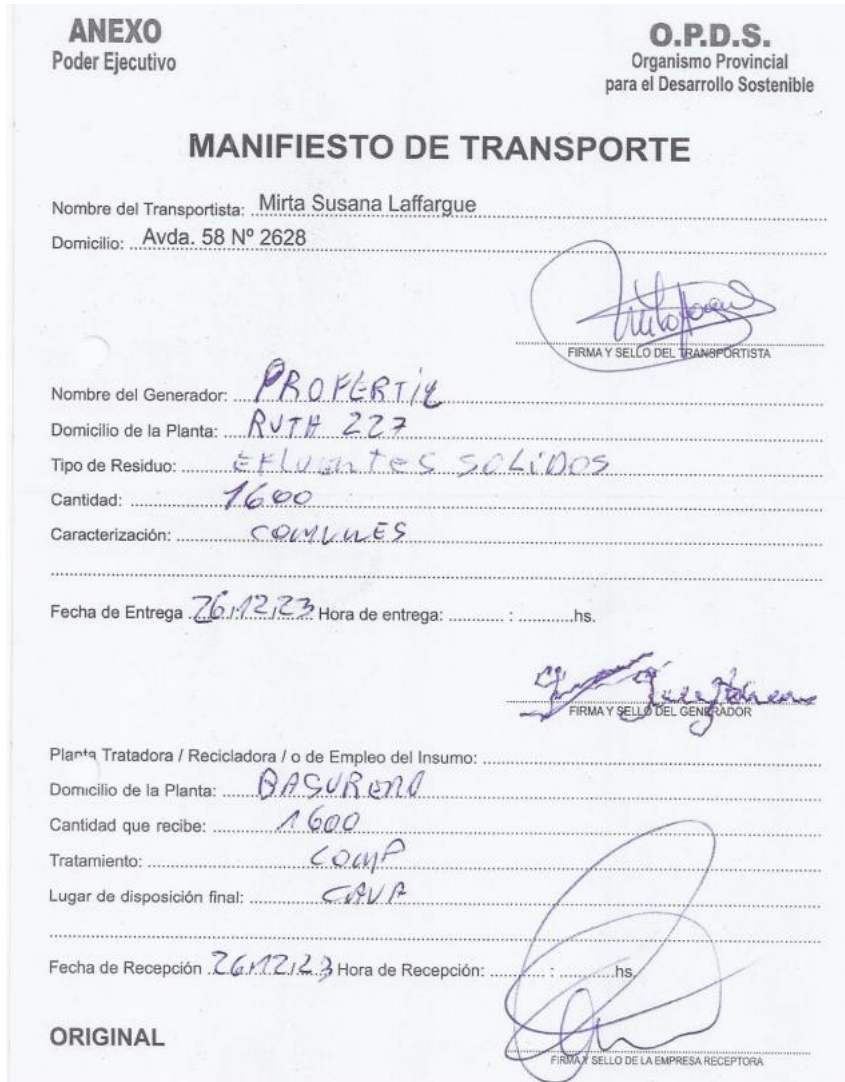 ANEXO
Poder Ejecutivo
O.P.D.S.
Organismo Provincial
para el Desarrollo Sostenible
MANIFIESTO DE TRANSPORTE
Nombre del Transportista: Mirta Susana Laffargue
Domicilio: Avda. 58 Nº 2628
FIRMA Y SELLO DEL TRANSPORTISTA
Nombre del Generador: PROFERTIL
Domicilio de la Planta: RUTA 227
Tipo de Residuo: EFluentes SOLiDOS
Cantidad: 1600
Caracterización: COMUNES
Fecha de Entrega 26,12,23 Hora de entrega: ............ : ............hs.
FIRMA Y SELLO DEL GENERADOR
Planta Tratadora / Recicladora / o de Empleo del Insumo:
Domicilio de la Planta: BASURERO
Cantidad que recibe: 1600
Tratamiento: COMP
Lugar de disposición final: CAVA
Fecha de Recepción 26,12,23 Hora de Recepción: ............ : ............hs.
ORIGINAL
FIRMA Y SELLO DE LA EMPRESA RECEPTORA